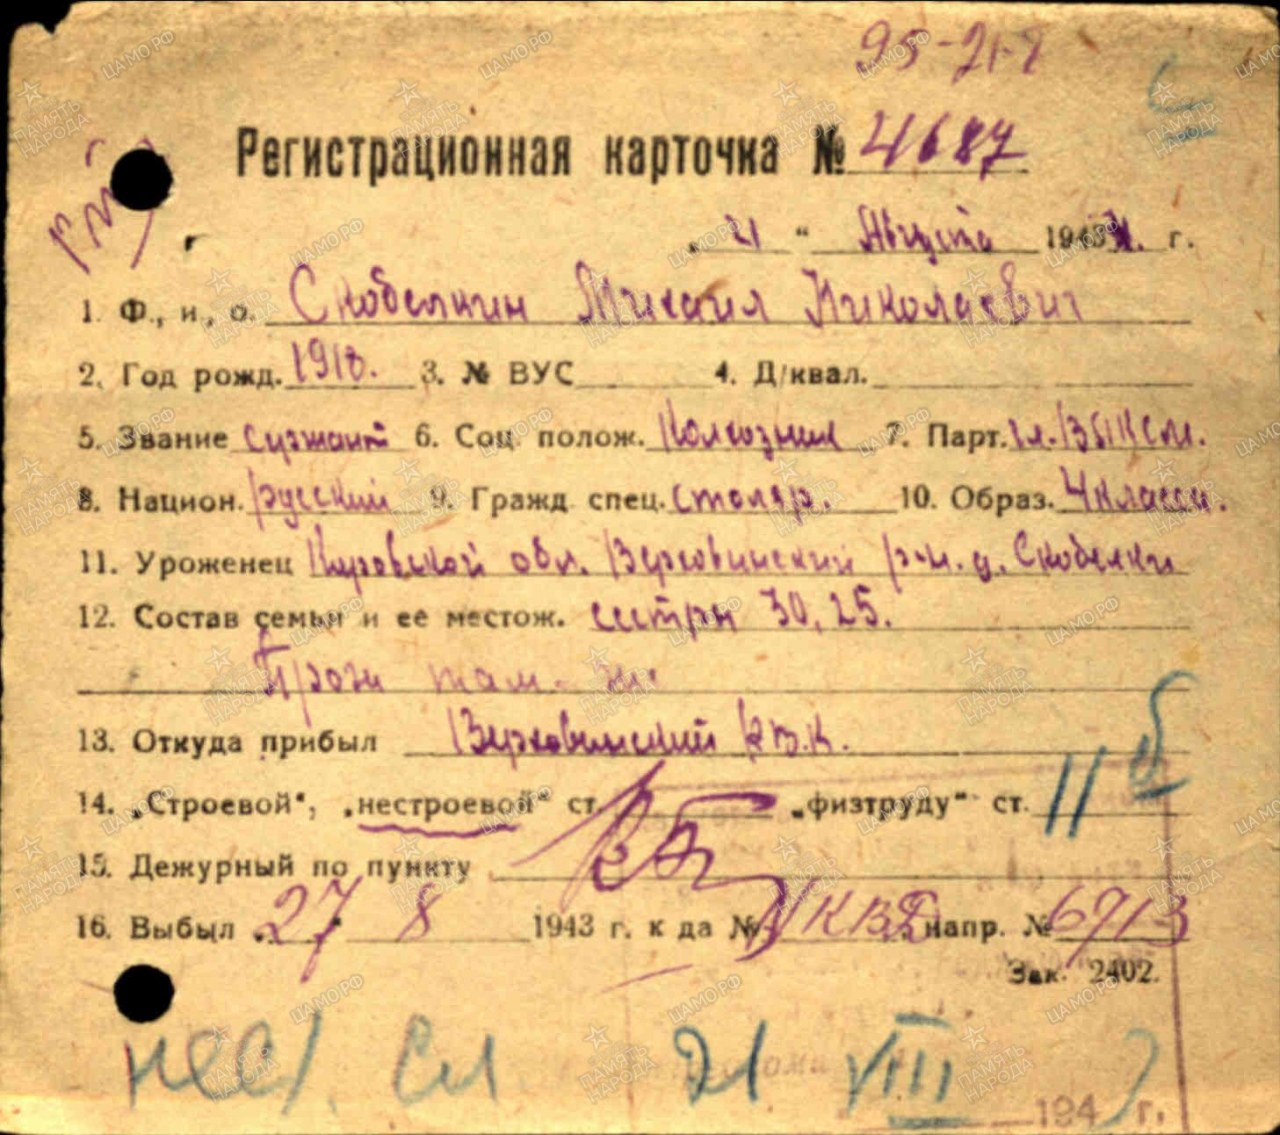 95-21-2
Регистрационная карточка № 4687
„21“ Августа 1943 г.
1. Ф., и, о. Скобелкин Михаил Николаевич
2. Год рожд. 1918. 3. № ВУС 4. Д/квал.
5. Звание сержант 6. Соц. полож. Колхозник 7. Парт. чл. ВЛКСМ.
8. Национ. русский 9. Гражд. спец. столяр. 10. Образ. 4 класса.
11. Уроженец Кировской обл. Верховинский р-н. д. Скобелки
12. Состав семьи и ее местож. сестры 30, 25.
Прож там-же
13. Откуда прибыл Верховинский РВК.
14. „Строевой“, „нестроевой“ ст. „физтруду“ ст. II б
15. Дежурный по пункту
16. Выбыл „27“ 8 1943 г. к да № НКВД напр. № 6713
Зак. 2402.
нест. сл 21 VIII
194 г.